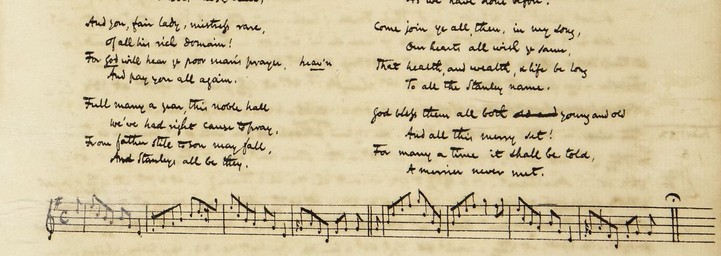 And you, fair lady, mistress rare,
Of all his rich domain!
For God will hear ye poor man's prayer, heav'n
And pay you all again.
Full many a year, this noble hall
We've had right cause to pray,
From father still to son may fall,
And Stanleys all be they.
As we have done before.
Come join ye all, then, in my song,
Our hearts all wish ye same,
That health, and wealth, & life be long
To all the Stanley name.
God bless them all both old and young and old
And all this merry set!
For many a time it shall be told,
A merrier never met.